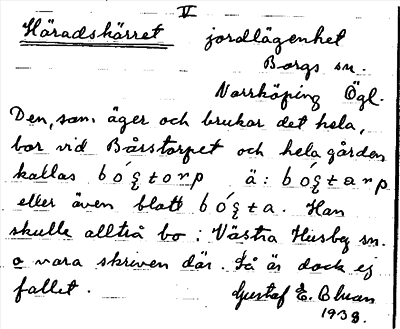 V
Häradskärret jordlägenhet
Borgs sn.
Norrköping Ögl.
Den, som äger och brukar det hela,
bor vid Bårstorpet och hela gården
kallas
eller även blott Han
skulle alltså bo i Västra Husby sn.
o vara skriven där. Så är dock ej
fallet. Gustaf E.
1938.